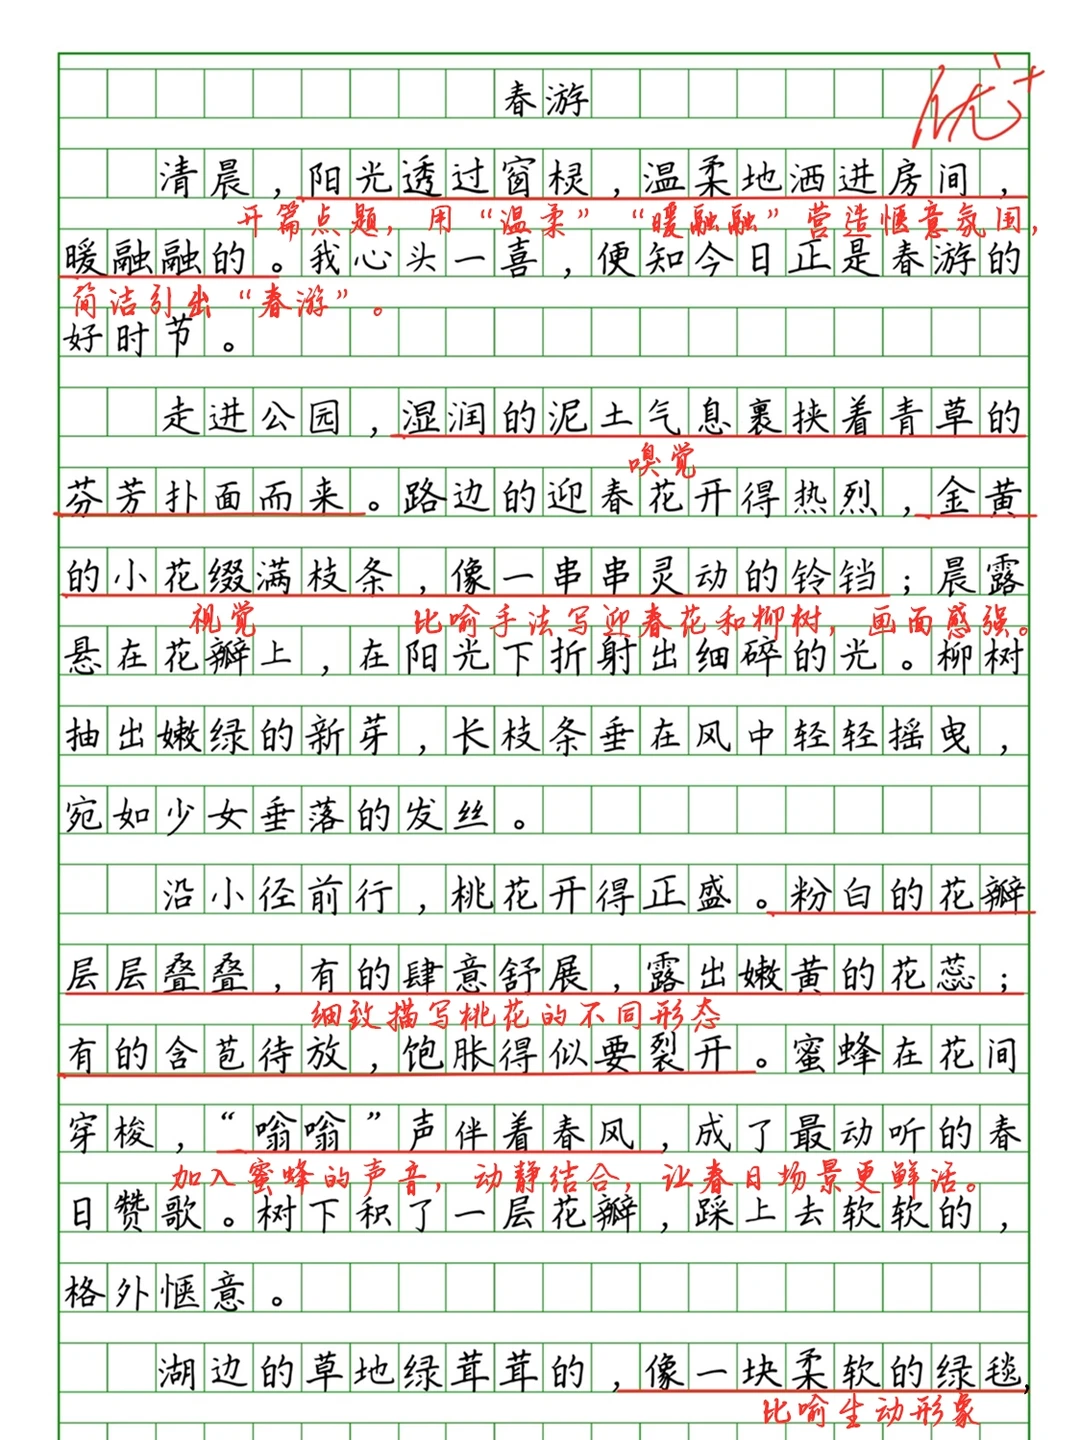 春游
优+
清晨，阳光透过窗棂，温柔地洒进房间，
开篇点题，用“温柔”“暖融融”营造惬意氛围，
暖融融的。我心头一喜，便知今日正是春游的
简洁引出“春游”。
好时节。
走进公园，湿润的泥土气息裹挟着青草的
嗅觉
芬芳扑面而来。路边的迎春花开得热烈，金黄
的小花缀满枝条，像一串串灵动的铃铛；晨露
视觉 比喻手法写迎春花和柳树，画面感强。
悬在花瓣上，在阳光下折射出细碎的光。柳树
抽出嫩绿的新芽，长枝条垂在风中轻轻摇曳，
宛如少女垂落的发丝。
沿小径前行，桃花开得正盛。粉白的花瓣
层层叠叠，有的肆意舒展，露出嫩黄的花蕊；
细致描写桃花的不同形态
有的含苞待放，饱胀得似要裂开。蜜蜂在花间
穿梭，“嗡嗡”声伴着春风，成了最动听的春
加入蜜蜂的声音，动静结合，让春日场景更鲜活。
日赞歌。树下积了一层花瓣，踩上去软软的，
格外惬意。
湖边的草地绿茸茸的，像一块柔软的绿毯，
比喻生动形象